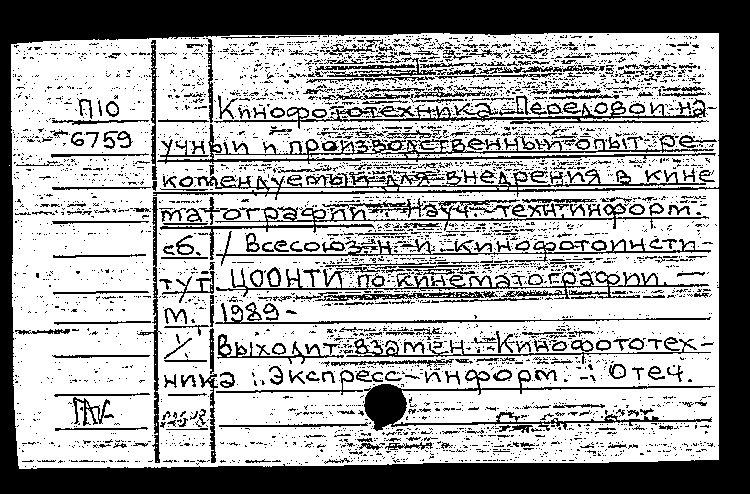 П10
6759
Кинофототехника. Передовой на-
учный и производственный опыт, ре-
комендуемый для внедрения в кине
матографии : Науч.-техн. информ.
сб. / Всесоюз. н.-и. кинофотоинсти-
тут. ЦООНТИ по кинематографии. —
М. 1989 -
Выходит взамен: Кинофототех-
ника : Экспресс-информ. : Отеч.